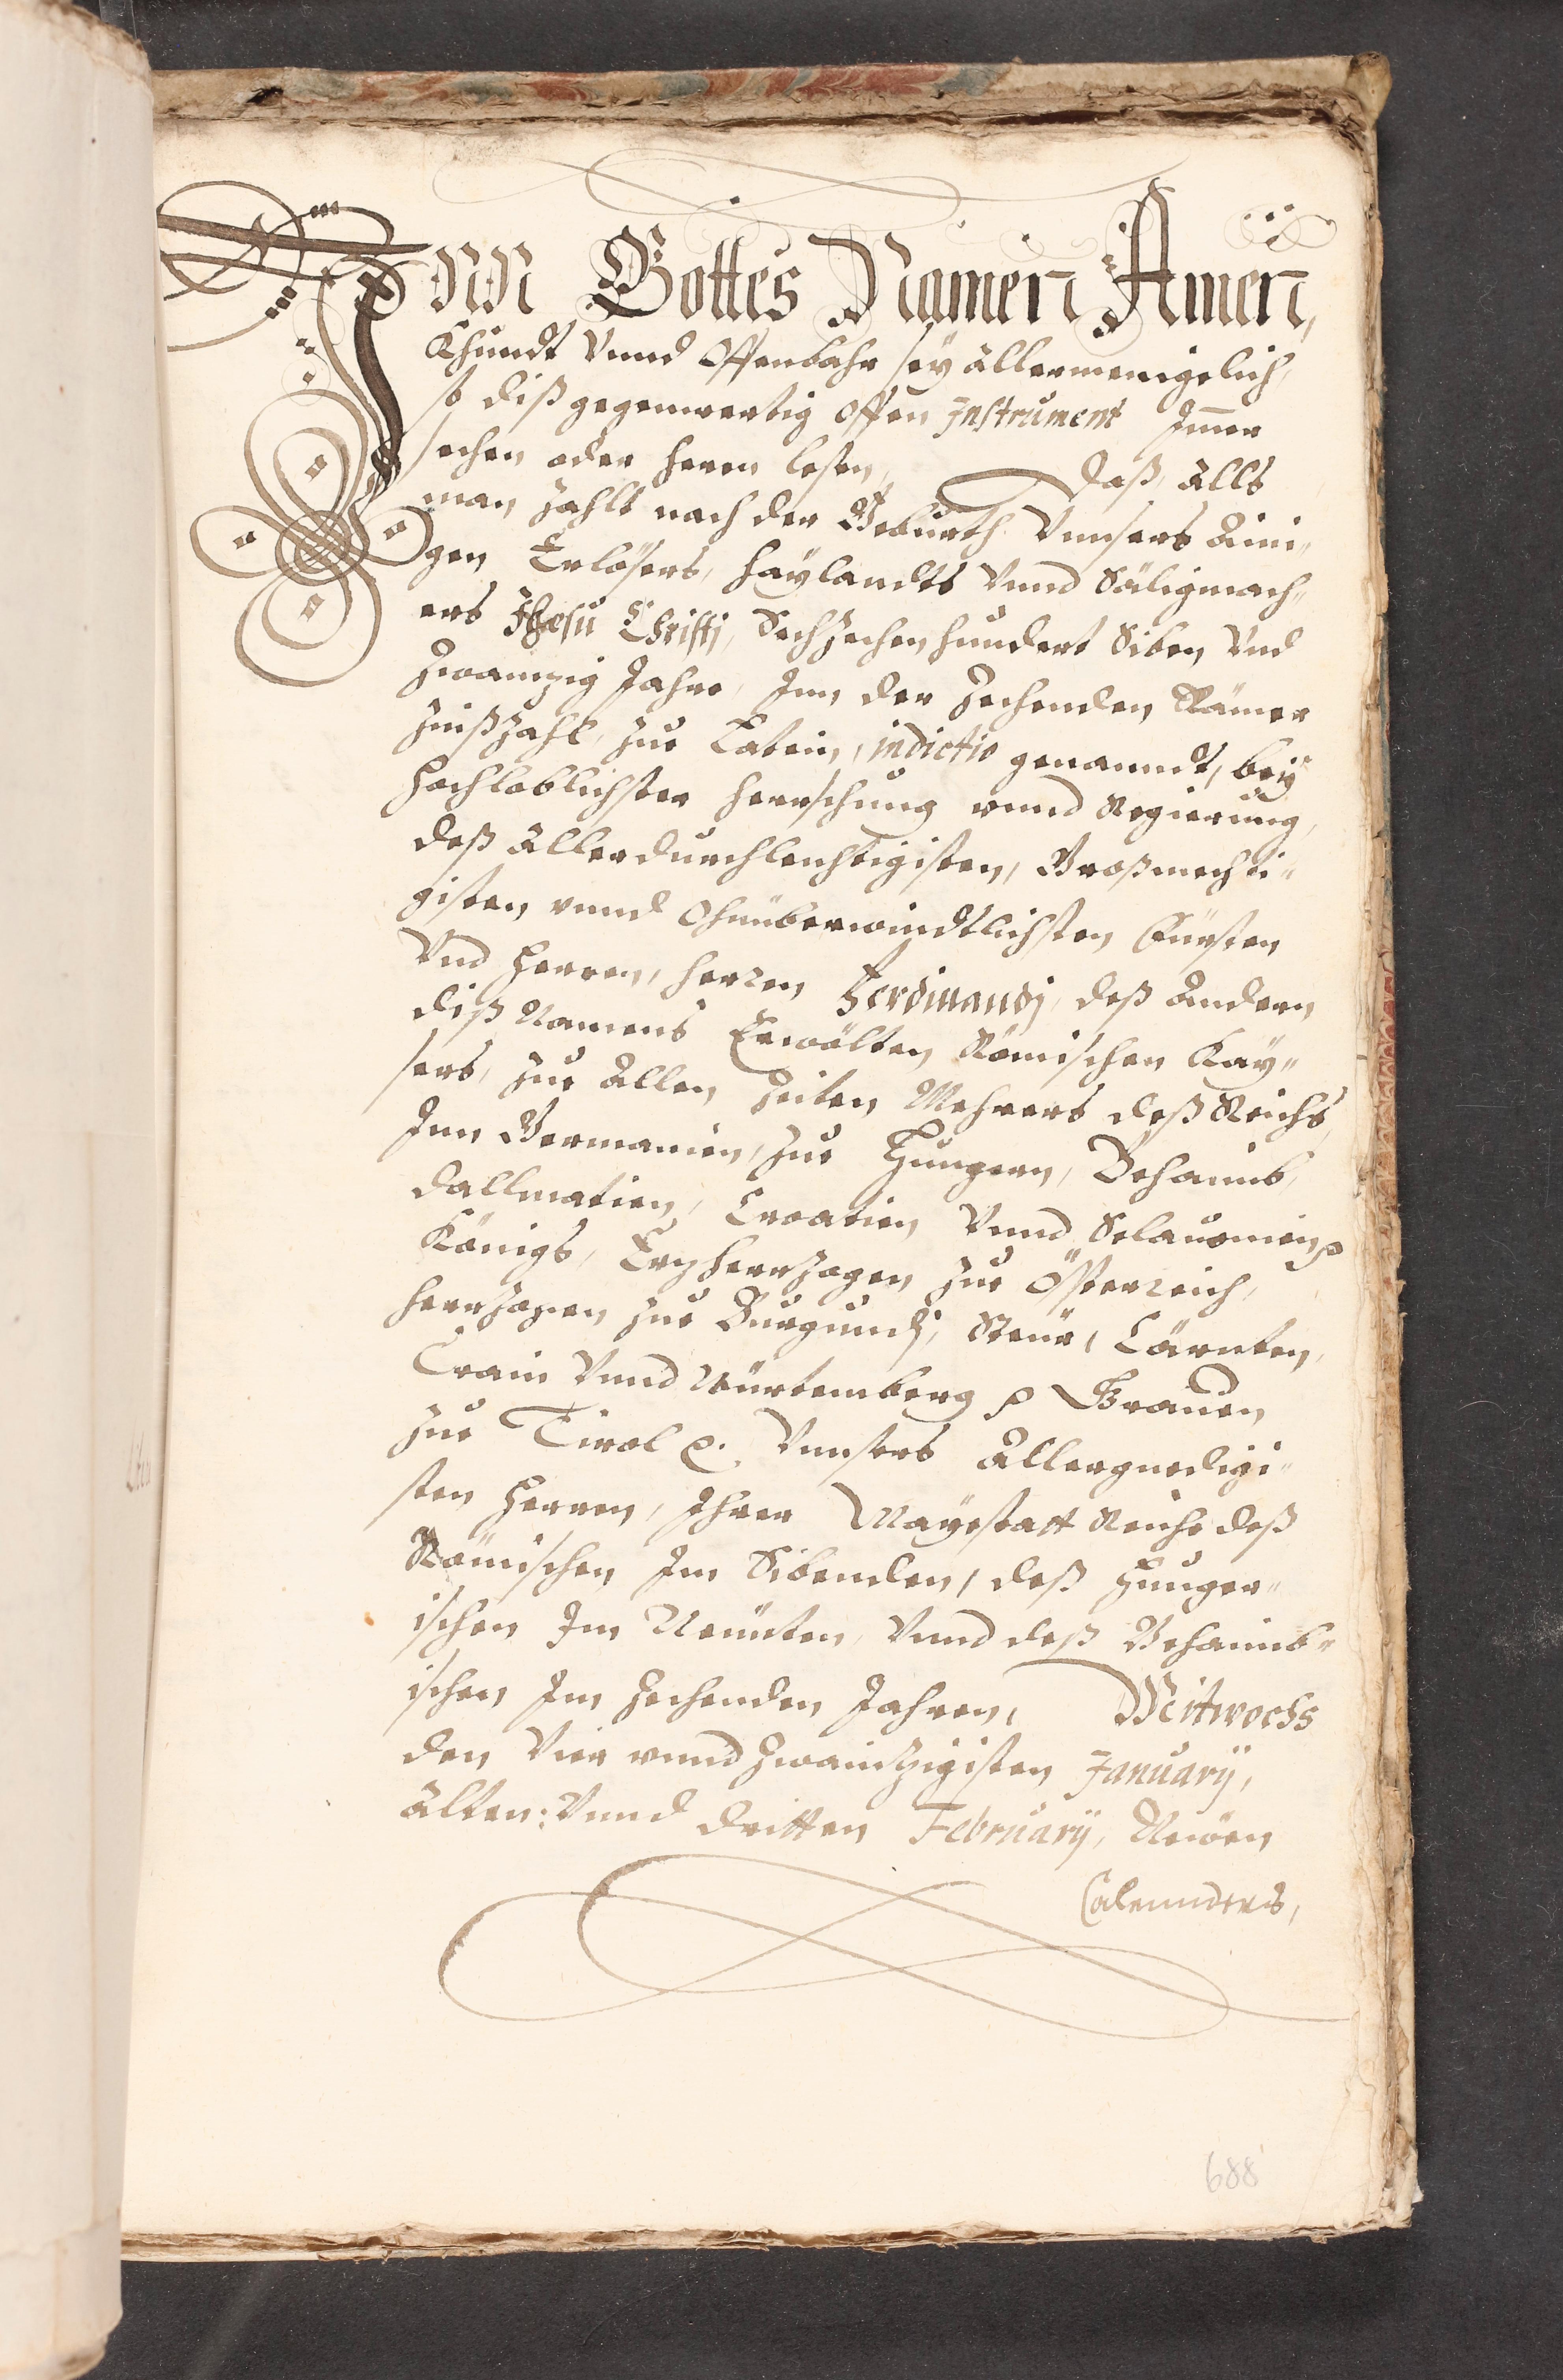 INN Gottes Namen Amen,
Khundt Vnnd Offenbahr seÿ allermenigelich,
so diß gegenwertig offen Instrument Immer
sechen oder heren lesen, Daß, alls
man zahlt nach der Geburth Vnnsers Aini„
gen Erlösers, Haÿlandts Vnnd Säligmach„
ers Jhesu Christj, Sechzechenhundert Siben Vnd
zwainzig Jahre, Inn der zechenden Römer
Zinßzahl, zue Latein, indictio genanndt, beÿ
hochloblichster herrschung vnnd Regierung,
deß Allerdurchleuchtigisten, Großmechti„
gisten vnnd Ohnüberwindtlichsten Fürsten
Vnd Herren, herren Ferdinandj, deß Andern
diß Namens Erwölten Römischen Kaÿ„
sers, zue Allen Zeiten Mehrers deß Reichs,
Inn Germanien, zue Hungern, Behaimb,
Dallmatien, Croatien Vnnd Sclauonien p
Königs, Erzherzogen zue Össterreich,
Herrzogen zue Burgundj, Steür, Cärnten,
Crain Vnnd Würtemberg p Grauen
zue Tirol p. Vnnsers Allergnedigi„
sten Herren, Ihrer Maÿestatt Reiche deß
Römischen Im Sibenden, deß Hunger„
ischen Im Neünten, Vnnd deß Behaimb„
ischen Im zechenden Jahren, Mitwochs
den Vier vnnd zwaintzigisten Januarÿ,
Alten: Vnnd dritten Februarÿ, Newen
Calennders,
688